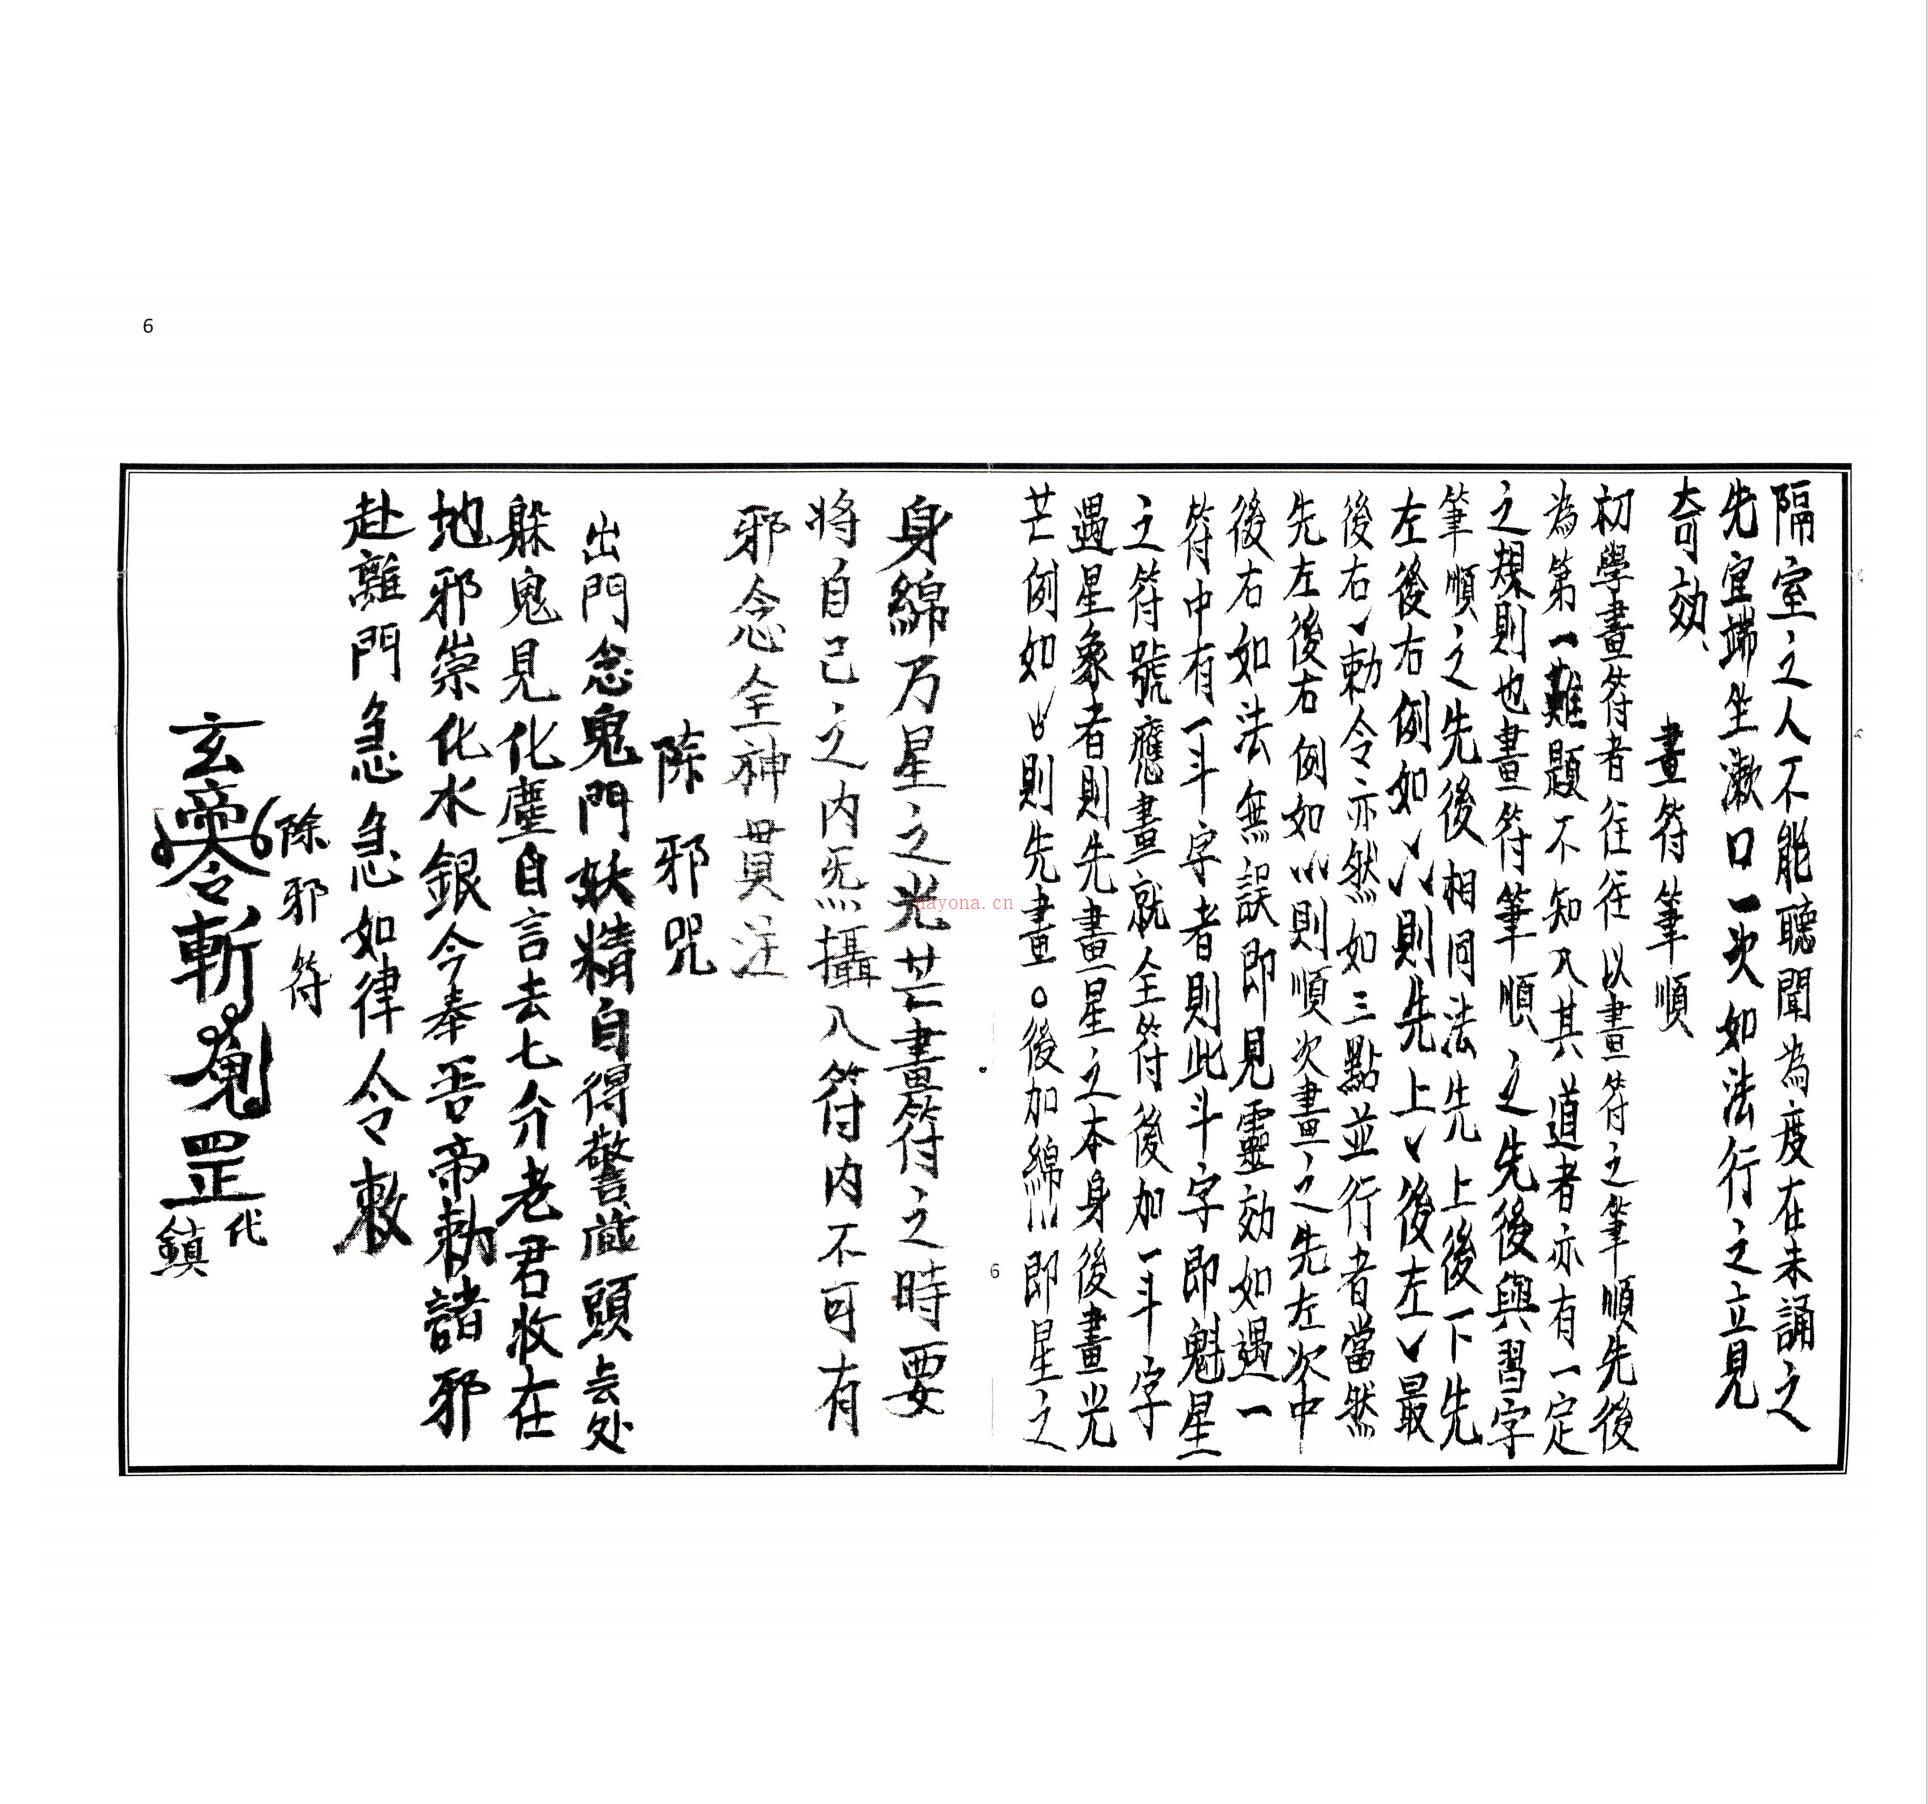 6
隔室之人不能聽聞為度在未誦之
先宜端坐漱口一次如法行之立見
奇効、
畫符筆順
初學畫符者往往以畫符之筆順先後
為第一難題不知入其道者亦有一定
之規則也畫符筆順之先後與習字
筆順之先後相同法先上後下先
左後右例如則先上後左最
後右勅令亦然如三點並行者當然
先左後右例如則順次畫之先左次中
後右如法無誤即見靈効如遇一
符中有一斗字者則此斗字即魁星
之符號應畫就全符後加一斗字
遇星象者則先畫星之本身後畫光
芒例如則先畫○後加綿即星之
6
身綿乃星之光芒畫符之時要
將自己之内炁攝入符内不可有
邪念全神貫注
除邪咒
出門念鬼門妖精自得警藏頭去处
躲鬼見化塵自言去七介老君收在
地邪祟化水銀今奉吾帝勅諸邪
赴離門急急如律令敕
除邪符
玄帝令斬鬼罡
代
鎮
nayona.cn